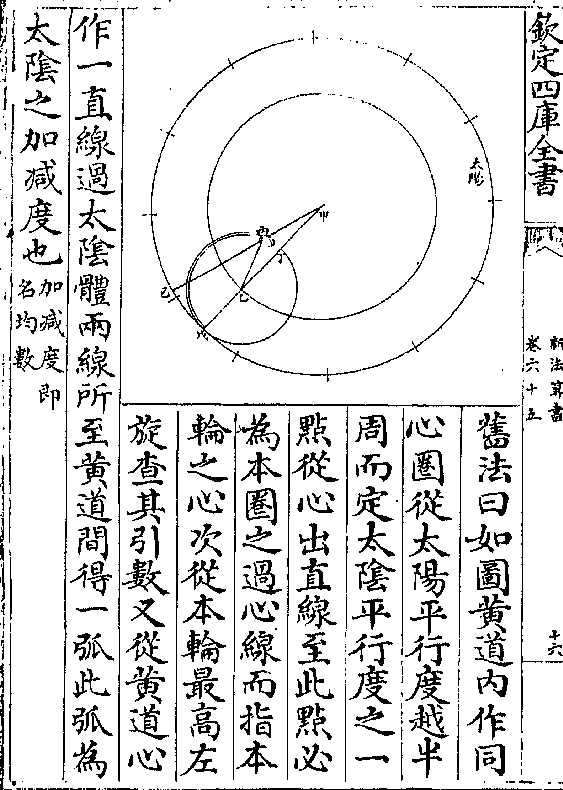 欽定四庫全書
新法算書
卷六十五
十六
太陽
甲
丁
乙
戊
己
舊法曰如圖黄道内作同
心圈從太陽平行度越半
周而定太陰平行度之一
點從心出直線至此點必
為本圈之過心線而指本
輪之心次從本輪最高左
旋查其引數又從黄道心
作一直線過太陰體兩線所至黄道間得一弧此弧為
太陰之加减度也加减度即
名均數